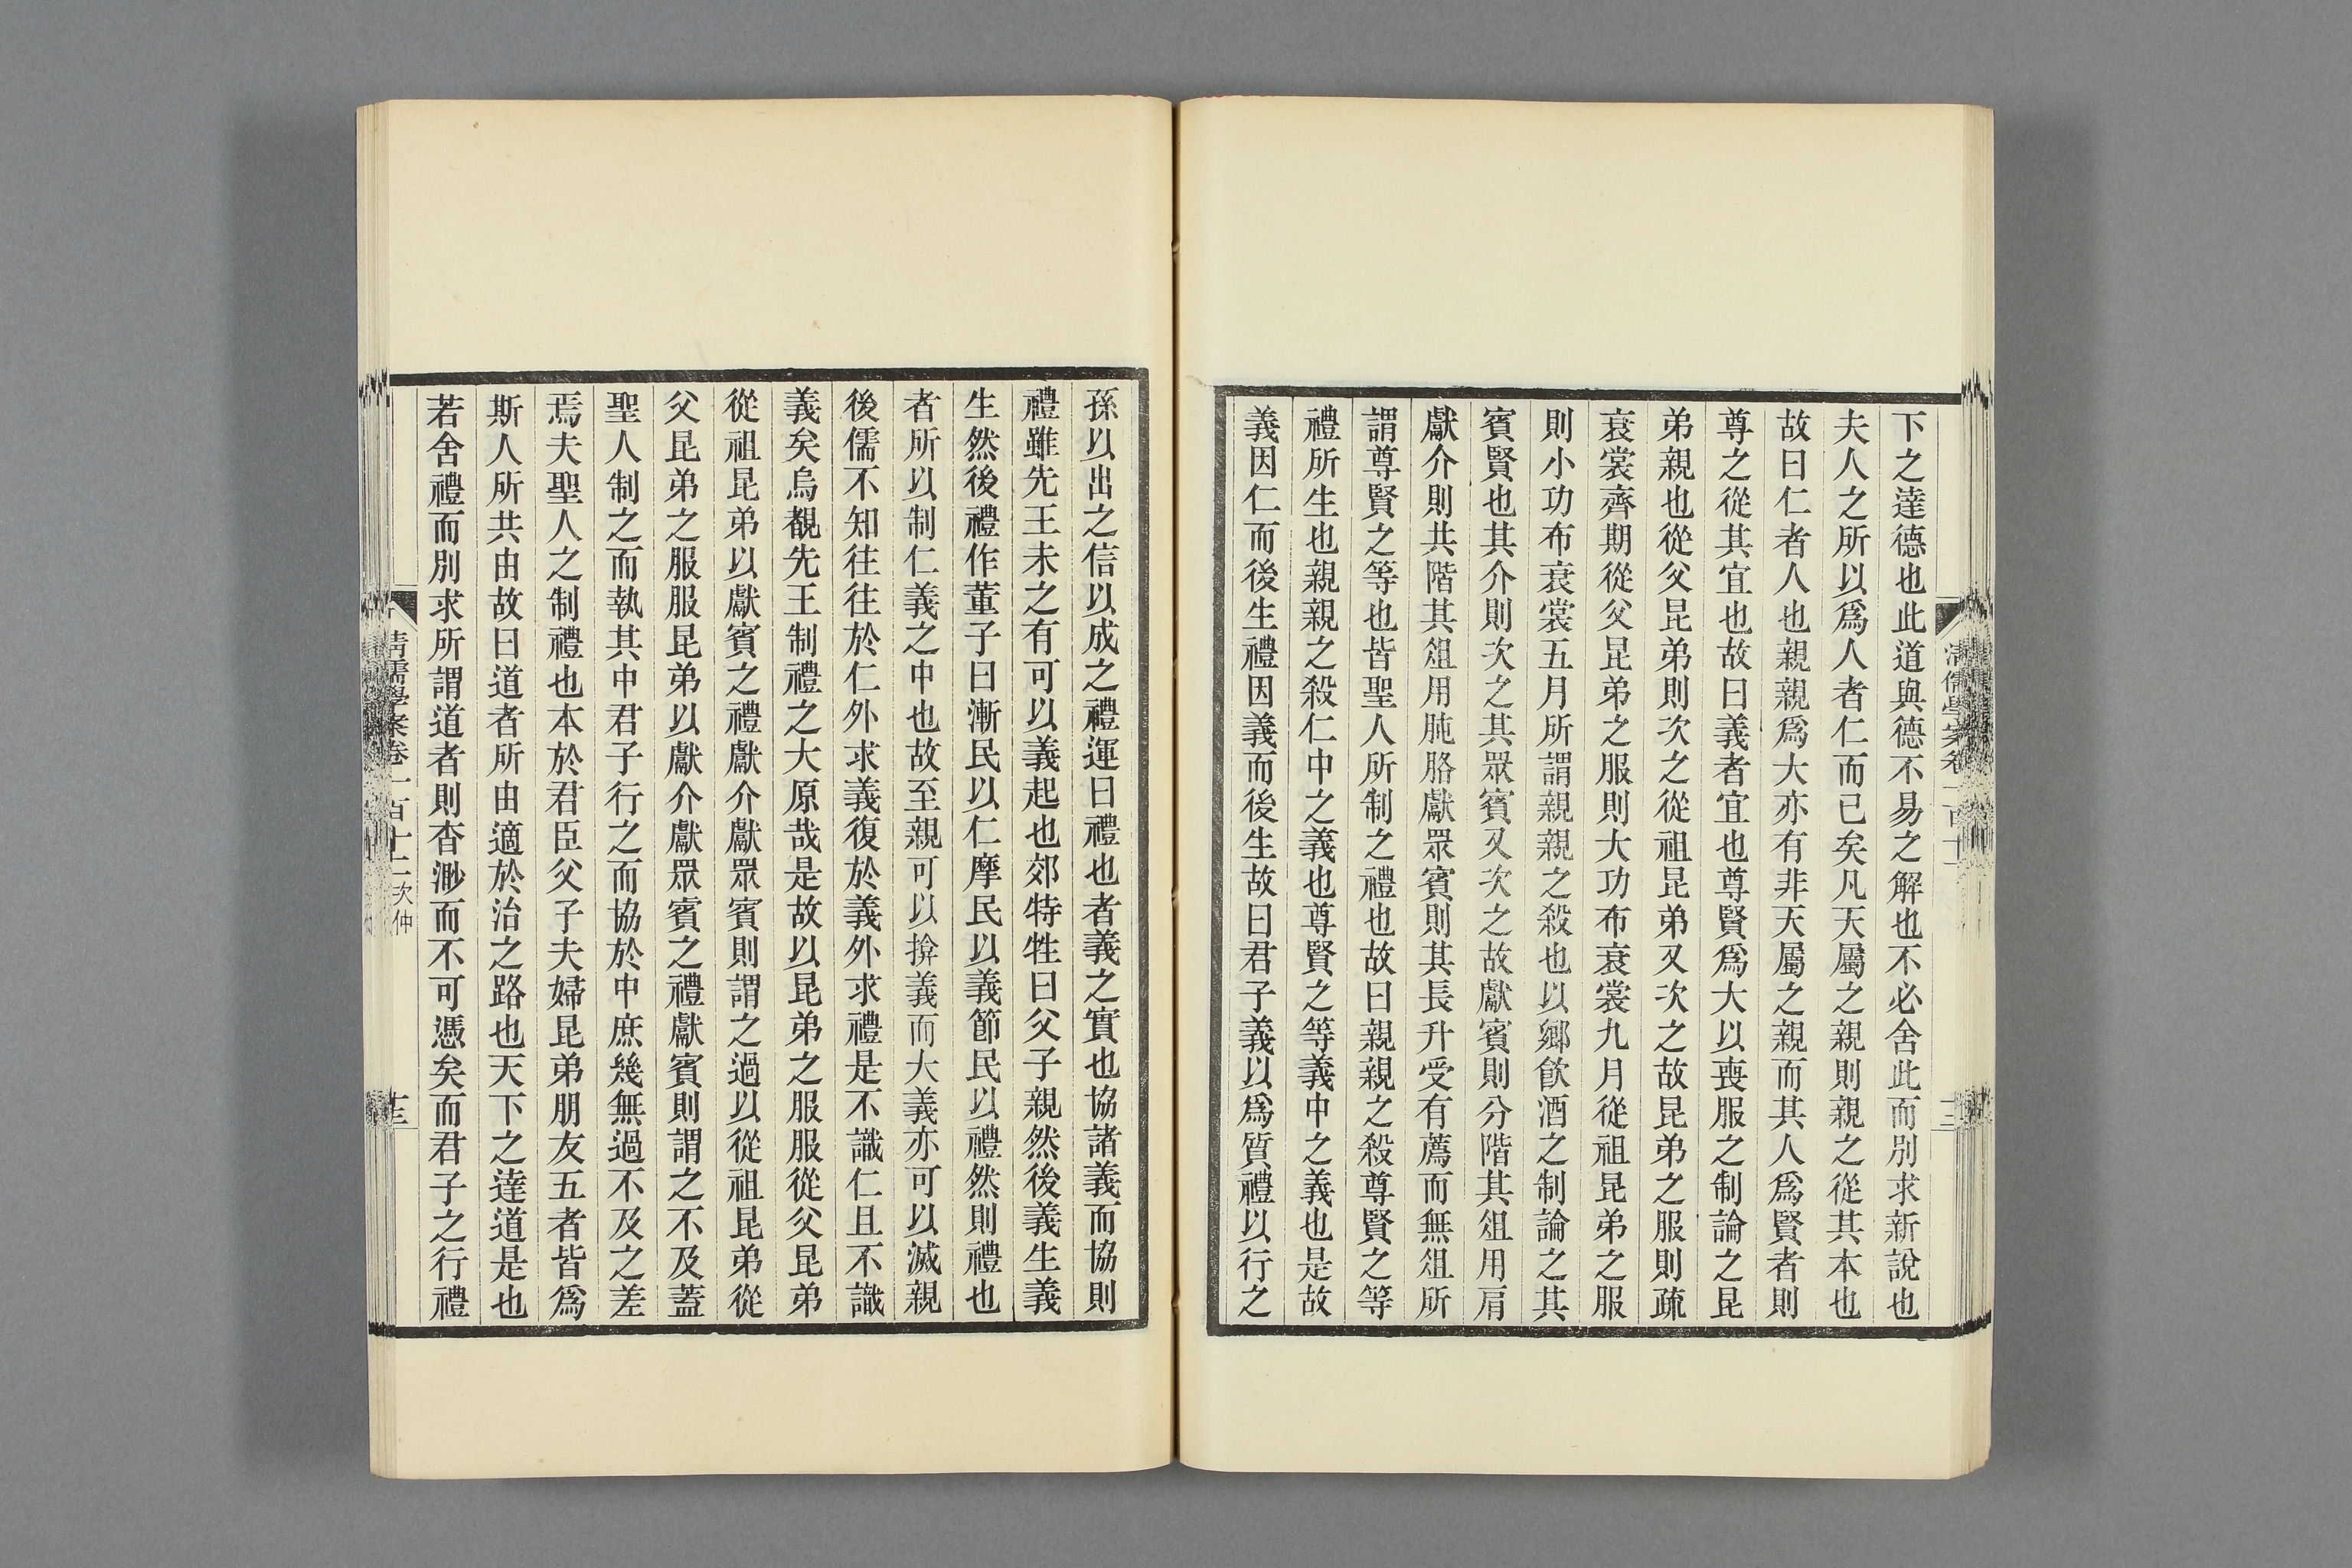 下之達德也此道與德不易之解也不必舍此而別求新說也
夫人之所以爲人者仁而已矣凡天屬之親則親之從其本也
故曰仁者人也親親爲大亦有非天屬之親而其人爲賢者則
尊之從其宜也故曰義者宜也尊賢爲大以喪服之制論之昆
弟親也從父昆弟則次之從祖昆弟又次之故昆弟之服則疏
衰裳齊期從父昆弟之服則大功布衰裳九月從祖昆弟之服
則小功布衰裳五月所謂親親之殺也以鄉飮酒之制論之其
賓賢也其介則次之其眾賓又次之故獻賓則分階其俎用肩
獻介則共階其俎用肫胳獻眾賓則其長升受有薦而無俎所
謂尊賢之等也皆聖人所制之禮也故曰親親之殺尊賢之等
禮所生也親親之殺仁中之義也尊賢之等義中之義也是故
義因仁而後生禮因義而後生故曰君子義以爲質禮以行之
孫以出之信以成之禮運曰禮也者義之實也協諸義而協則
禮雖先王未之有可以義起也郊特牲曰父子親然後義生義
生然後禮作董子曰漸民以仁摩民以義節民以禮然則禮也
者所以制仁義之中也故至親可以揜義而大義亦可以滅親
後儒不知往往於仁外求義復於義外求禮是不識仁且不識
義矣烏覩先王制禮之大原哉是故以昆弟之服服從父昆弟
從祖昆弟以獻賓之禮獻介獻眾賓則謂之過以從祖昆弟從
父昆弟之服服昆弟以獻介獻眾賓之禮獻賓則謂之不及蓋
聖人制之而執其中君子行之而協於中庶幾無過不及之差
焉夫聖人之制禮也本於君臣父子夫婦昆弟朋友五者皆爲
斯人所共由故曰道者所由適於治之路也天下之達道是也
若舍禮而別求所謂道者則杳渺而不可憑矣而君子之行禮
清儒學案卷一百十二 次仲
十三